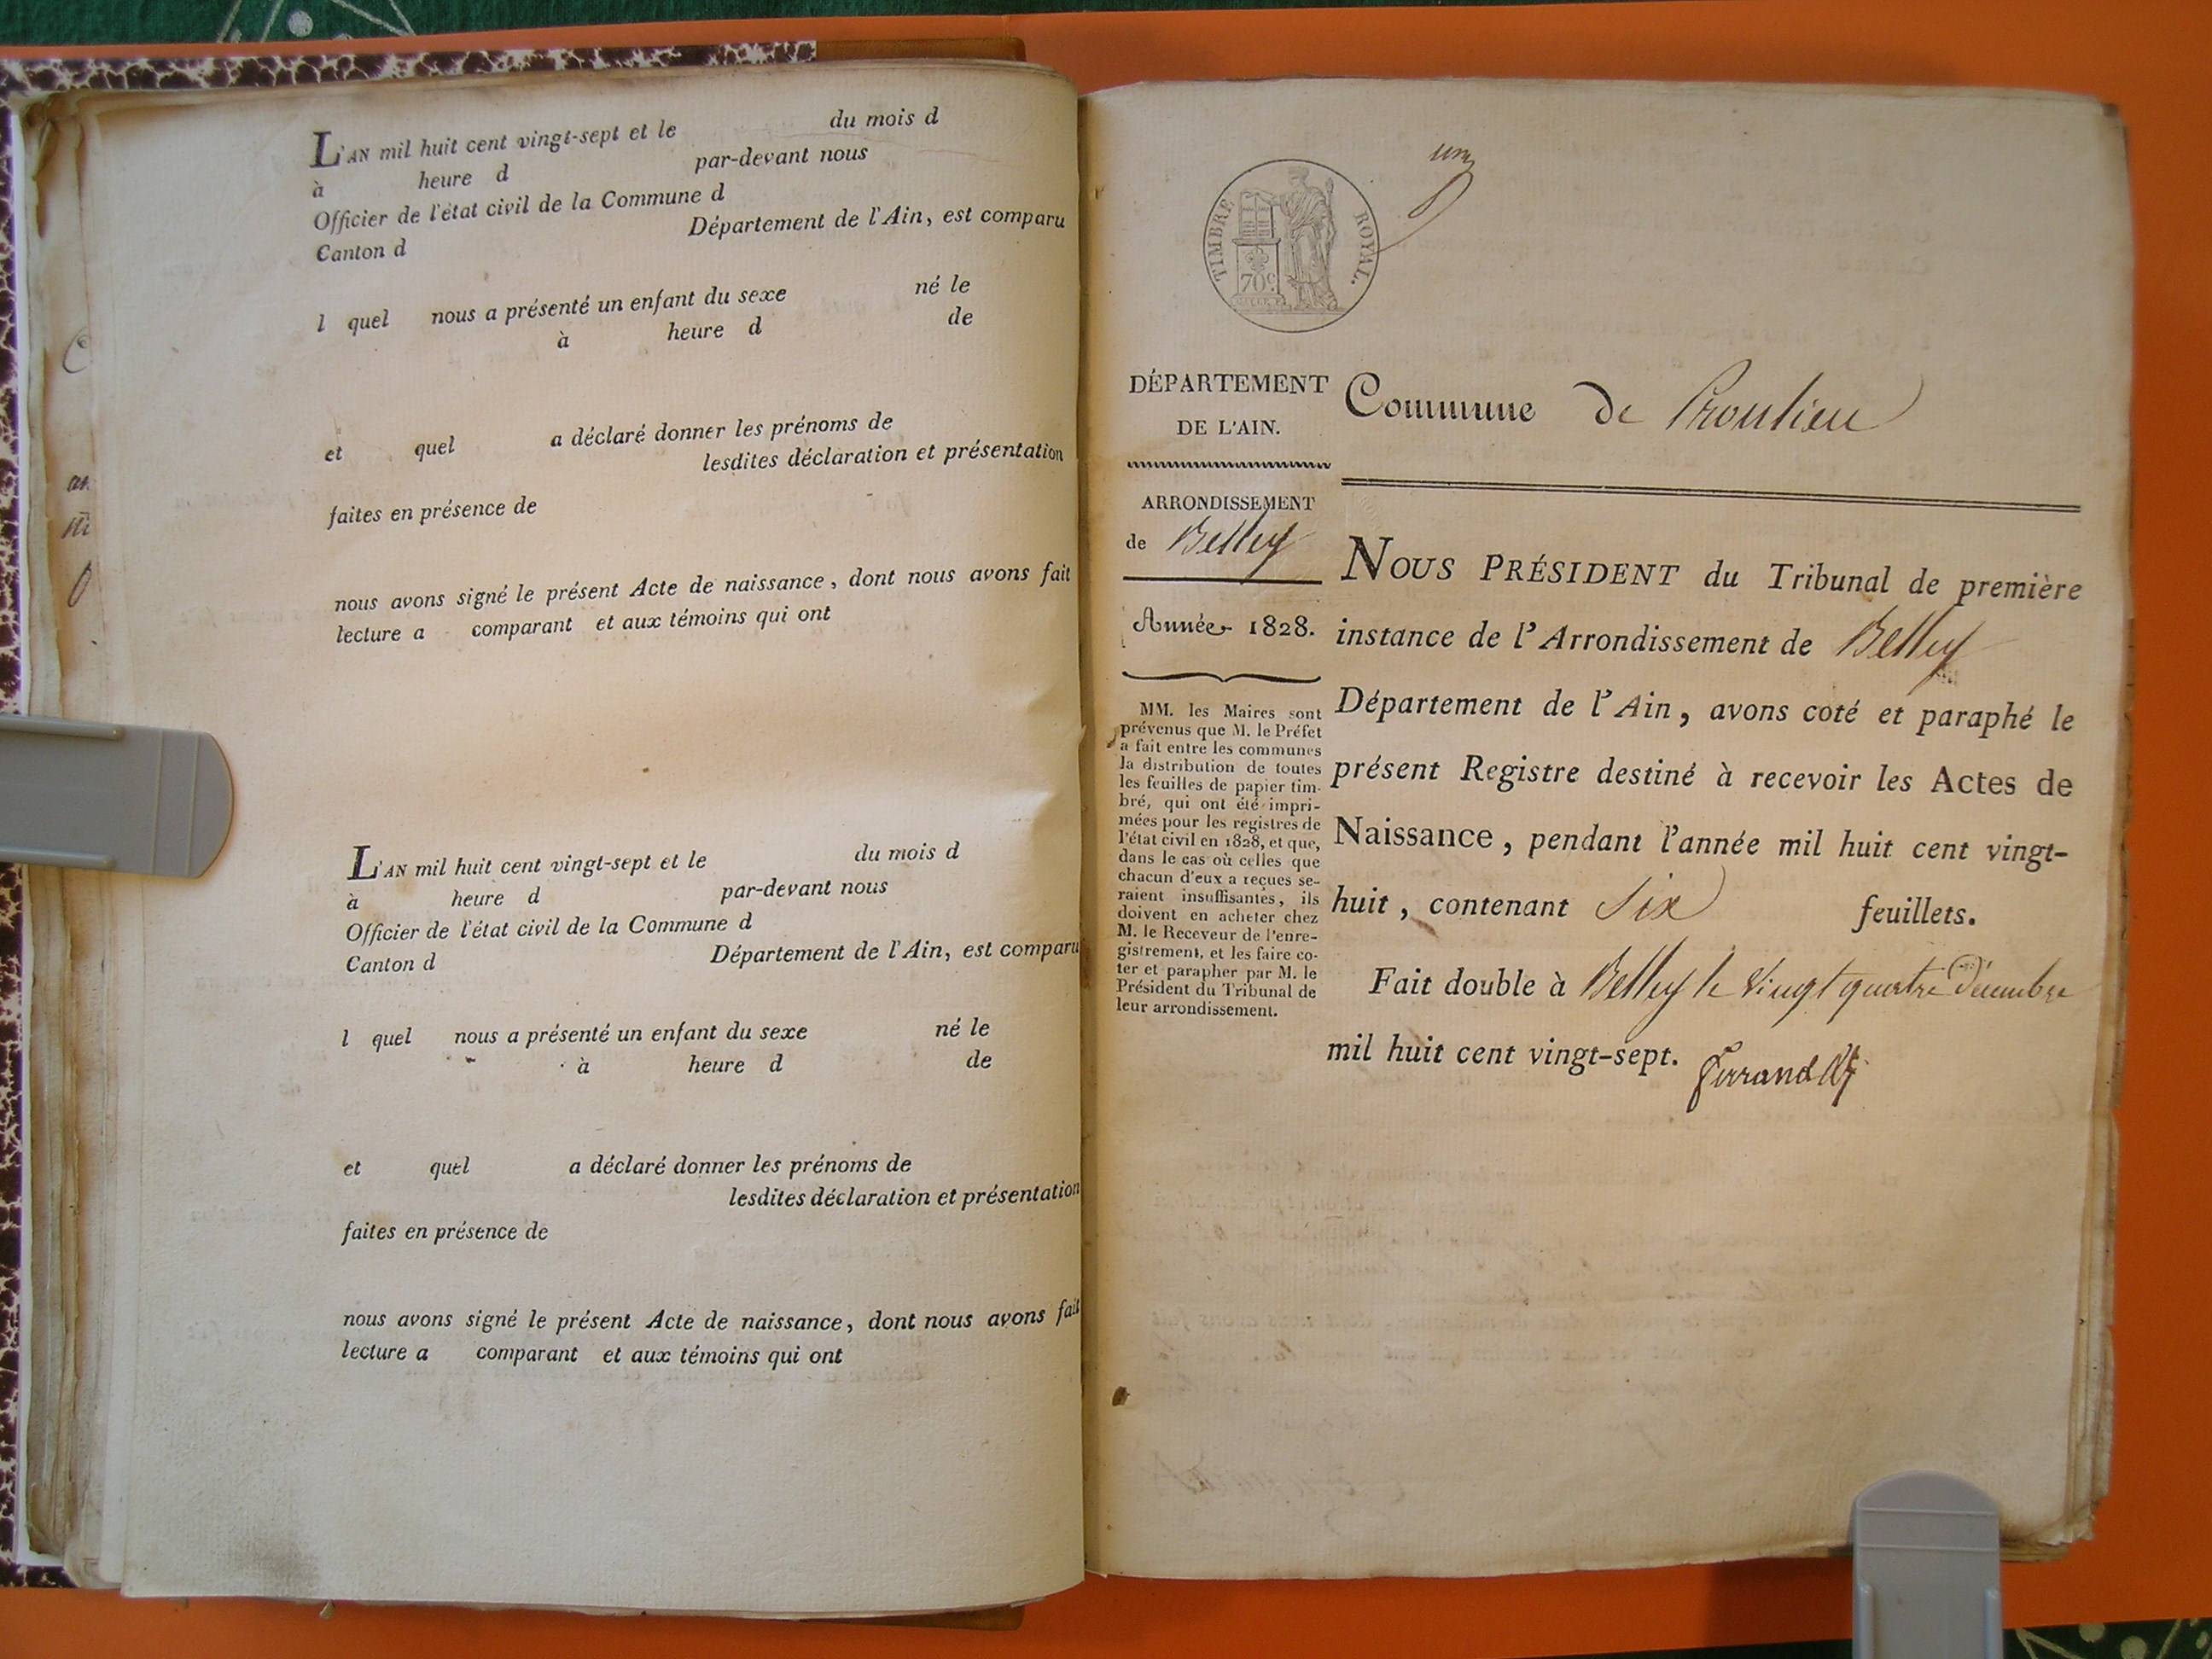 L'AN mil huit cent vingt-sept et le du mois d
à heure d par-devant nous
Officier de l'état civil de la Commune d
Canton d Département de l'Ain, est comparu
l quel nous a présenté un enfant du sexe né le
à heure d de
et quel a déclaré donner les prénoms de
lesdites déclaration et présentation
faites en présence de
nous avons signé le présent Acte de naissance, dont nous avons fait
lecture a comparant et aux témoins qui ont
L'AN mil huit cent vingt-sept et le du mois d
à heure d par-devant nous
Officier de l'état civil de la Commune d
Canton d Département de l'Ain, est comparu
l quel nous a présenté un enfant du sexe né le
à heure d de
et quel a déclaré donner les prénoms de
lesdites déclaration et présentation
faites en présence de
nous avons signé le présent Acte de naissance, dont nous avons fait
lecture a comparant et aux témoins qui ont
TIMBRE ROYAL.
70c
DÉPARTEMENT
DE L'AIN.
ARRONDISSEMENT
de Belley
Année 1828.
MM. les Maires sont
prévenus que M. le Préfet
a fait entre les communes
la distribution de toutes
les feuilles de papier tim-
bré, qui ont été impri-
mées pour les registres de
l'état civil en 1828, et que,
dans le cas où celles que
chacun d'eux a reçues se-
raient insuffisantes, ils
doivent en acheter chez
M. le Receveur de l'enre-
gistrement, et les faire co-
ter et parapher par M. le
Président du Tribunal de
leur arrondissement.
Commune de Proulieu
NOUS PRÉSIDENT du Tribunal de première
instance de l'Arrondissement de Belley
Département de l'Ain, avons coté et paraphé le
présent Registre destiné à recevoir les Actes de
Naissance, pendant l'année mil huit cent vingt-
huit, contenant Six feuillets.
Fait double à Belley le vingt quatre Décembre
mil huit cent vingt-sept.
Ferrand